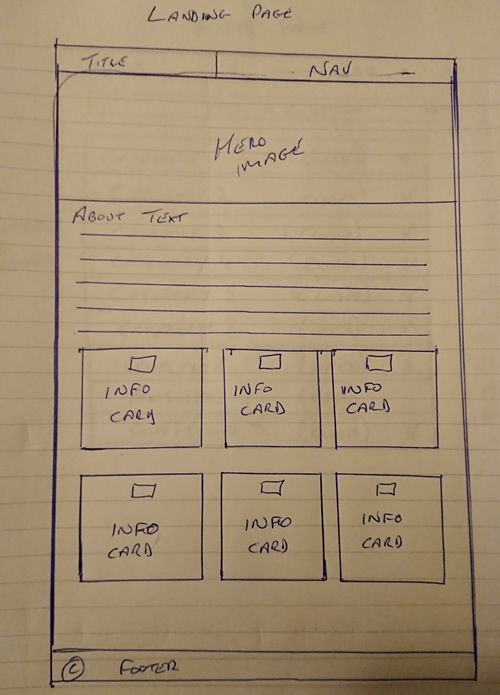 LANDING PAGE
TITLE
NAV
HERO
IMAGE
ABOUT TEXT
INFO
CARD
INFO
CARD
INFO
CARD
INFO
CARD
INFO
CARD
INFO
CARD
© FOOTER